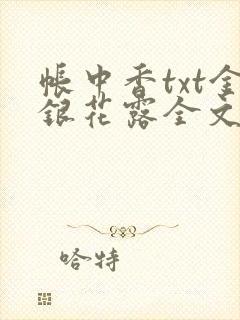 帐中香txt金
银花露全文
哈特